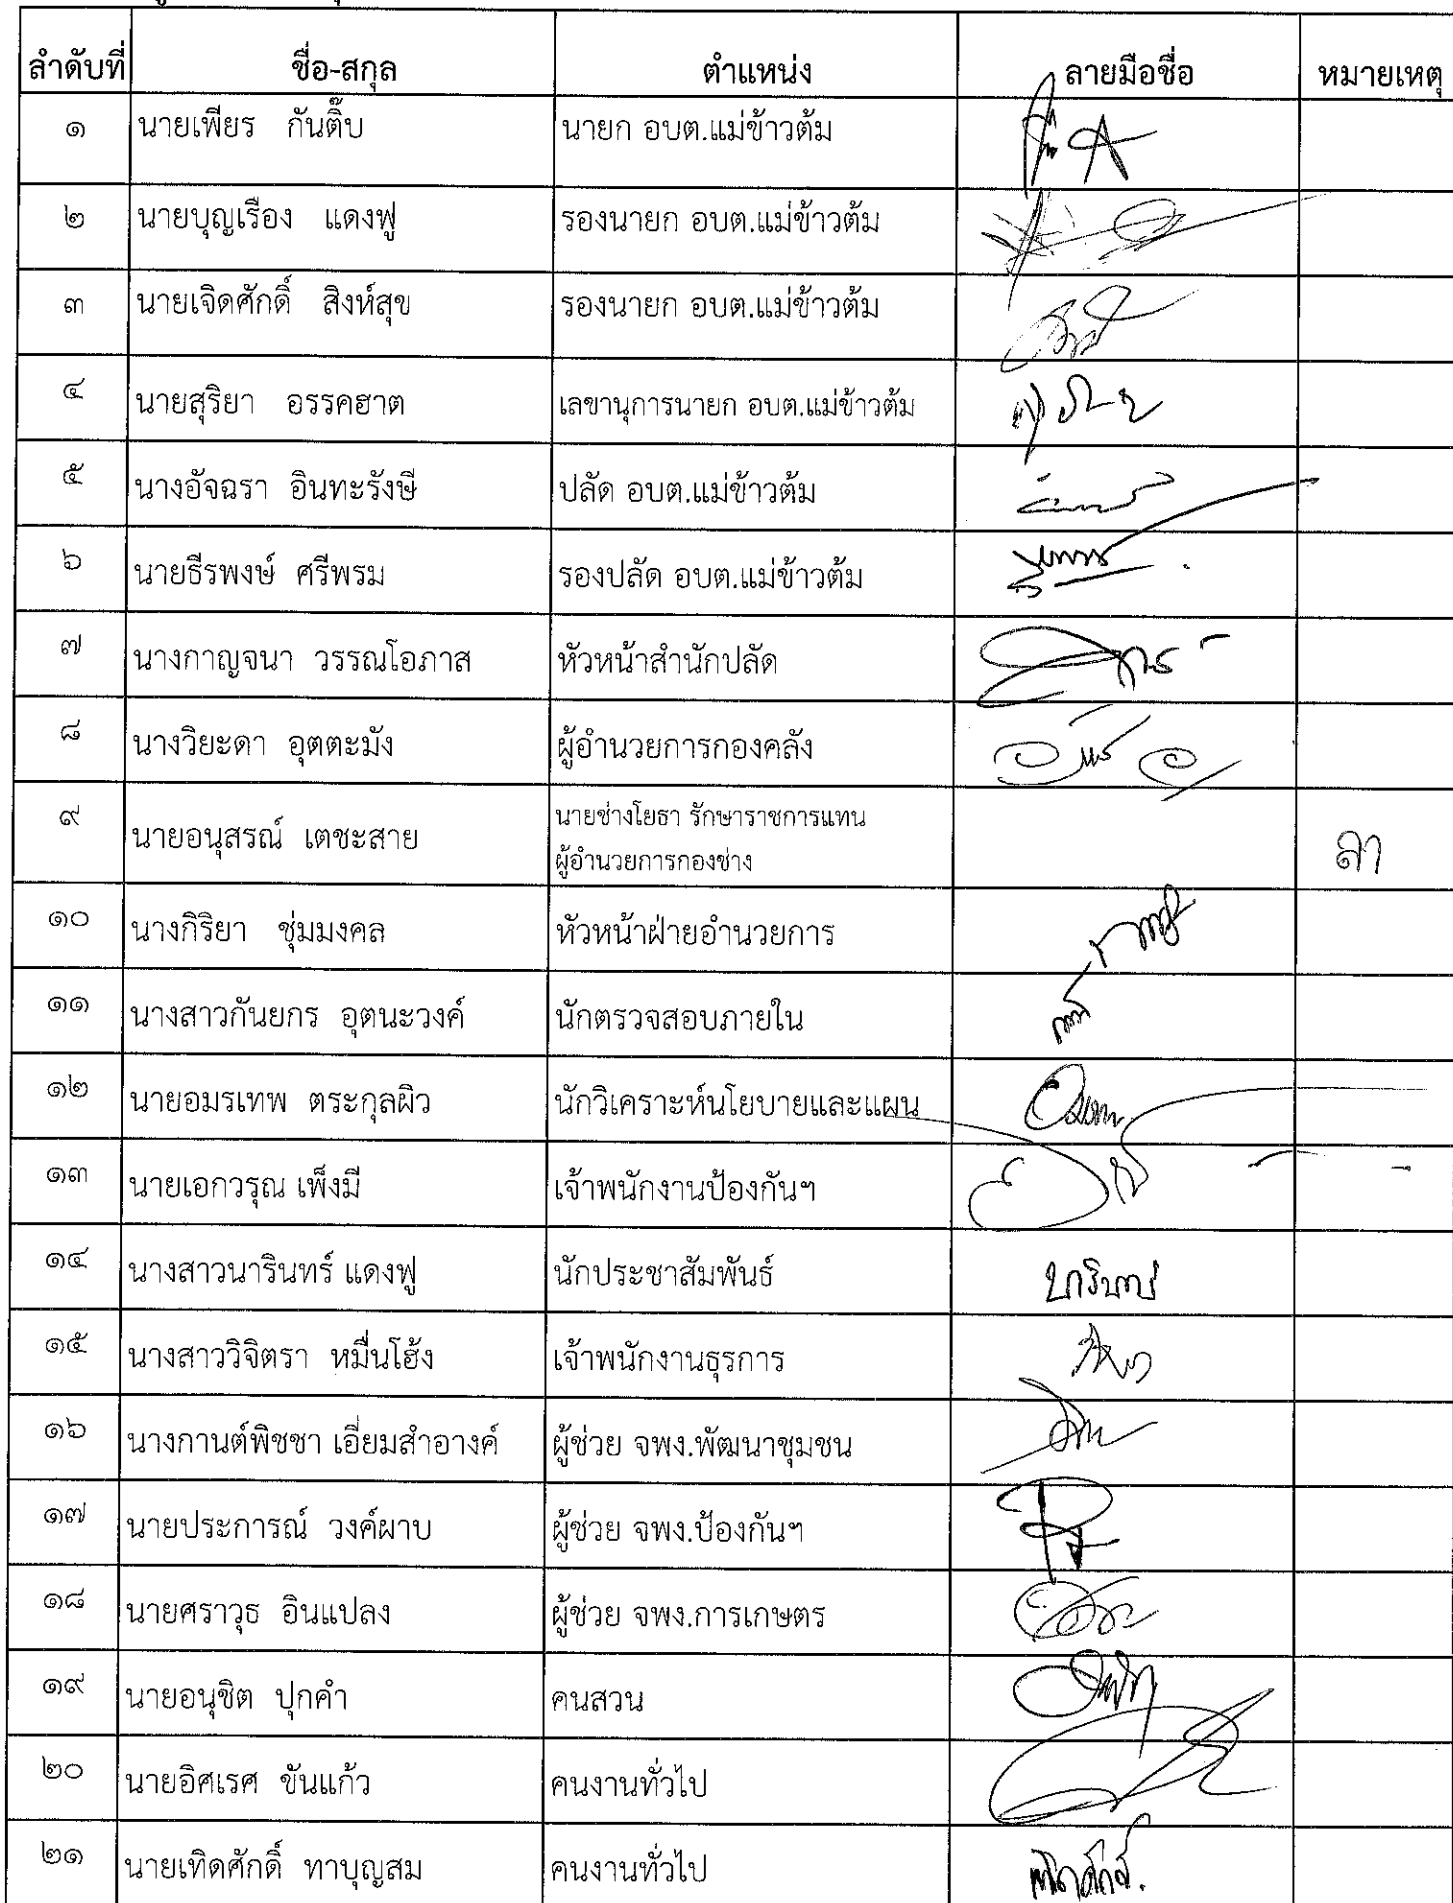 ลำดับที่ ชื่อ-สกุล ตำแหน่ง ลายมือชื่อ หมายเหตุ
๑ นายเพียร กันติ๊บ นายก อบต.แม่ข้าวต้ม
๒ นายบุญเรือง แดงฟู รองนายก อบต.แม่ข้าวต้ม
๓ นายเจิดศักดิ์ สิงห์สุข รองนายก อบต.แม่ข้าวต้ม
๔ นายสุริยา อรรคฮาต เลขานุการนายก อบต.แม่ข้าวต้ม
๕ นางอัจฉรา อินทะรังษี ปลัด อบต.แม่ข้าวต้ม
๖ นายธีรพงษ์ ศรีพรม รองปลัด อบต.แม่ข้าวต้ม
๗ นางกาญจนา วรรณโอภาส หัวหน้าสำนักปลัด
๘ นางวิยะดา อุตตะมัง ผู้อำนวยการกองคลัง
๙ นายอนุสรณ์ เตชะสาย นายช่างโยธา รักษาราชการแทน
ผู้อำนวยการกองช่าง ลา
๑๐ นางกิริยา ชุ่มมงคล หัวหน้าฝ่ายอำนวยการ
๑๑ นางสาวกันยกร อุตนะวงค์ นักตรวจสอบภายใน
๑๒ นายอมรเทพ ตระกุลผิว นักวิเคราะห์นโยบายและแผน
๑๓ นายเอกวรุณ เพ็งมี เจ้าพนักงานป้องกันฯ
๑๔ นางสาวนารินทร์ แดงฟู นักประชาสัมพันธ์ นารินทร์
๑๕ นางสาววิจิตรา หมื่นโฮ้ง เจ้าพนักงานธุรการ
๑๖ นางกานต์พิชชา เอี่ยมสำอางค์ ผู้ช่วย จพง.พัฒนาชุมชน
๑๗ นายประการณ์ วงค์ผาบ ผู้ช่วย จพง.ป้องกันฯ
๑๘ นายศราวุธ อินแปลง ผู้ช่วย จพง.การเกษตร
๑๙ นายอนุชิต ปุกคำ คนสวน
๒๐ นายอิศเรศ ขันแก้ว คนงานทั่วไป
๒๑ นายเทิดศักดิ์ ทาบุญสม คนงานทั่วไป เทิดศักดิ์.